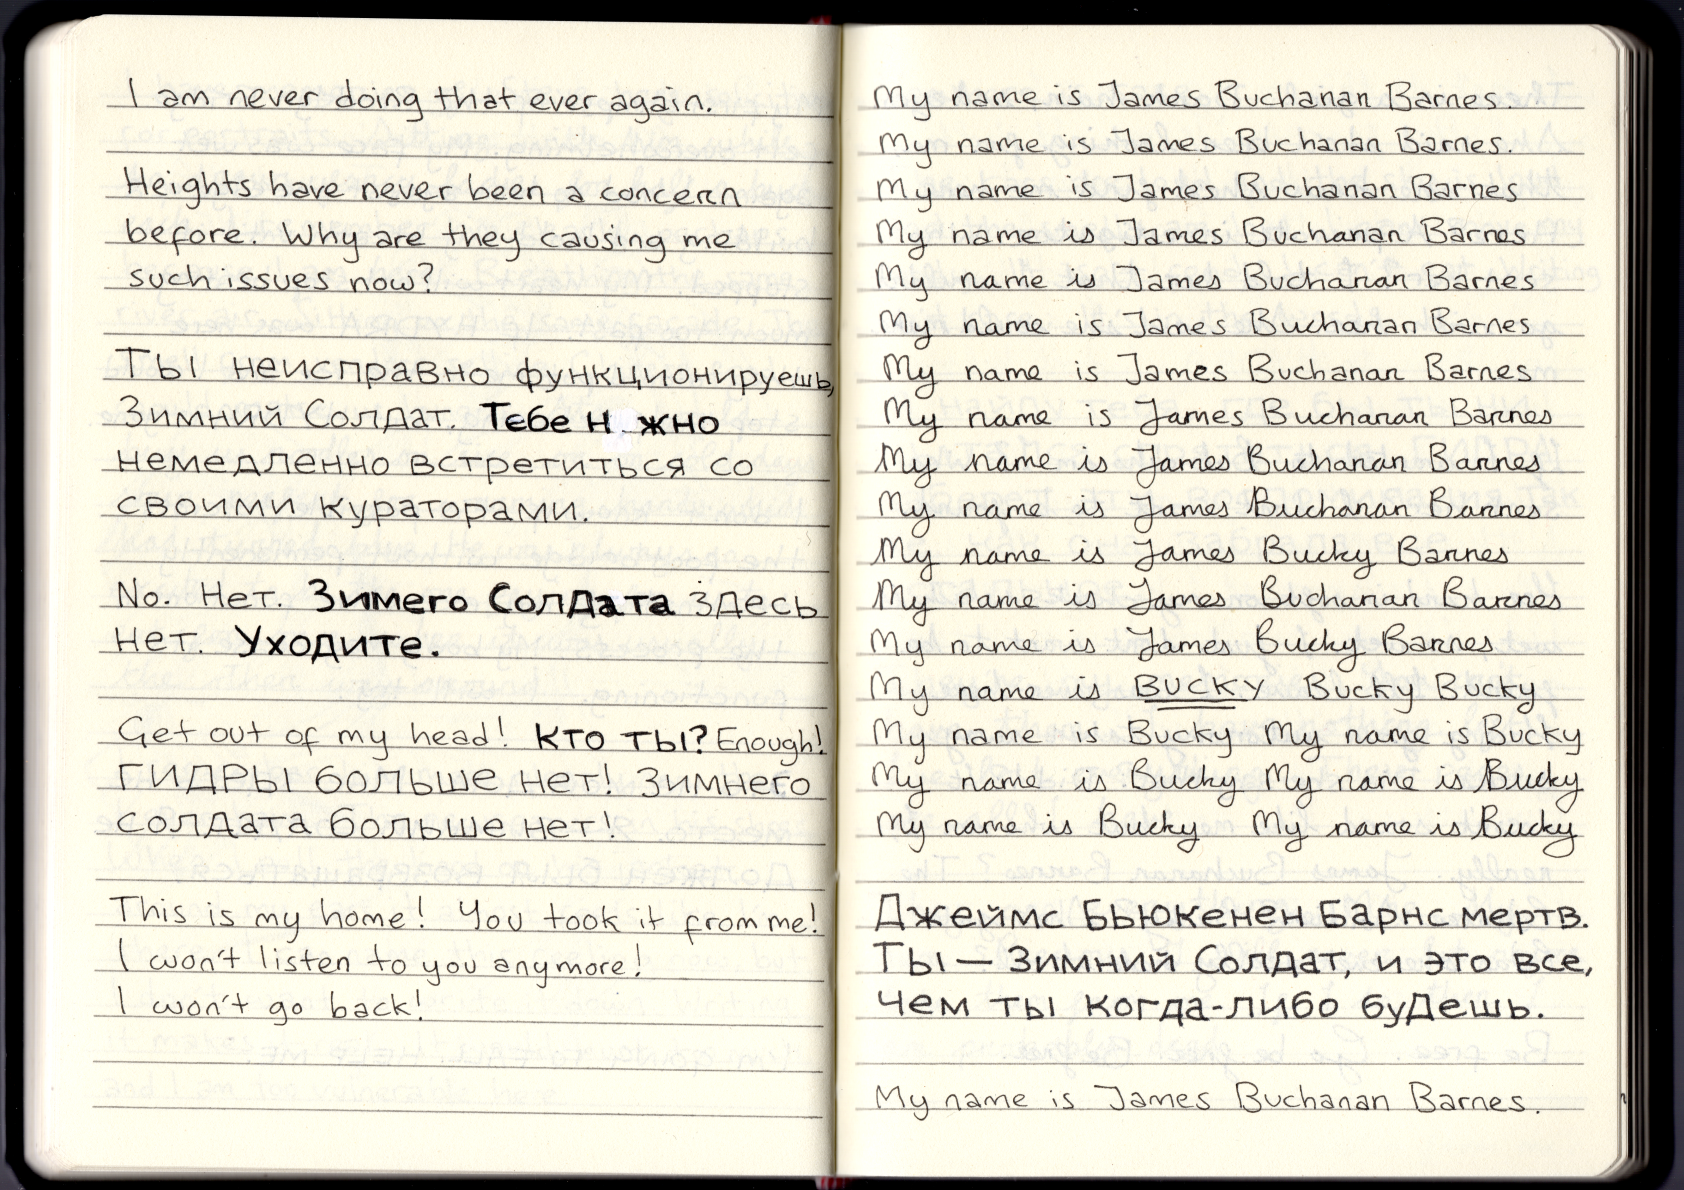 I am never doing that ever again.
Heights have never been a concern
before. Why are they causing me
such issues now?
Ты неисправно функционируешь,
Зимний Солдат. Тебе н жно
немедленно встретиться со
своими кураторами.
No. Нет. Зимего Солдата здесь
нет. Уходите.
Get out of my head! кто ты? Enough!
ГИДРЫ больше нет! Зимнего
солдата больше нет!
This is my home! You took it from me!
I won't listen to you anymore!
I won't go back!
My name is James Buchanan Barnes.
My name is James Buchanan Barnes.
My name is James Buchanan Barnes
My name is James Buchanan Barnes
My name is James Buchanan Barnes
My name is James Buchanan Barnes
My name is James Buchanan Barnes
My name is James Buchanan Barnes
My name is James Buchanan Barnes
My name is James Buchanan Barnes
My name is James Bucky Barnes
My name is James Buchanan Barnes
My name is James Bucky Barnes
My name is BUCKY Bucky Bucky
My name is Bucky My name is Bucky
My name is Bucky My name is Bucky
My name is Bucky My name is Bucky
Джеймс Бьюкенен Барнс мертв.
Ты — Зимний Солдат, и это все,
чем ты когда-либо будешь.
My name is James Buchanan Barnes.